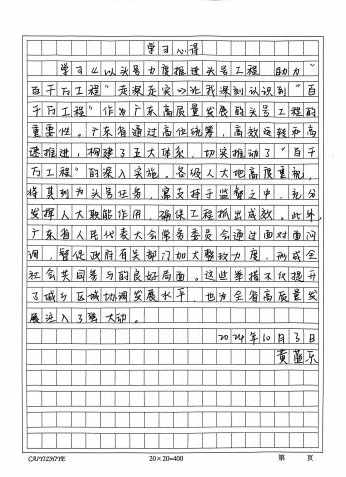 学习心得
学习《以头号力度推进头号工程 助力"
百千万工程"走深走实》让我深刻认识到"百
千万工程"作为广东高质量发展的头号工程的
重要性。广东省通过高位统筹，高效运转和高
速推进，构建了五大体系，切实推动了"百千
万工程"的深入实施。各级人大也高度重视，
将其列为头号任务，寓支持于监督之中，充分
发挥人大职能作用，确保工程抓出成效。此外，
广东省人民代表大会常务委员会通过面对面问
询，督促政府有关部门加大整改力度，形成全
社会共同参与的良好局面。这些举措不仅提升
了城乡区域协调发展水平，也为全省高质量发
展注入了强大动。
2024年10月3日
黄
20×20=400
第 页